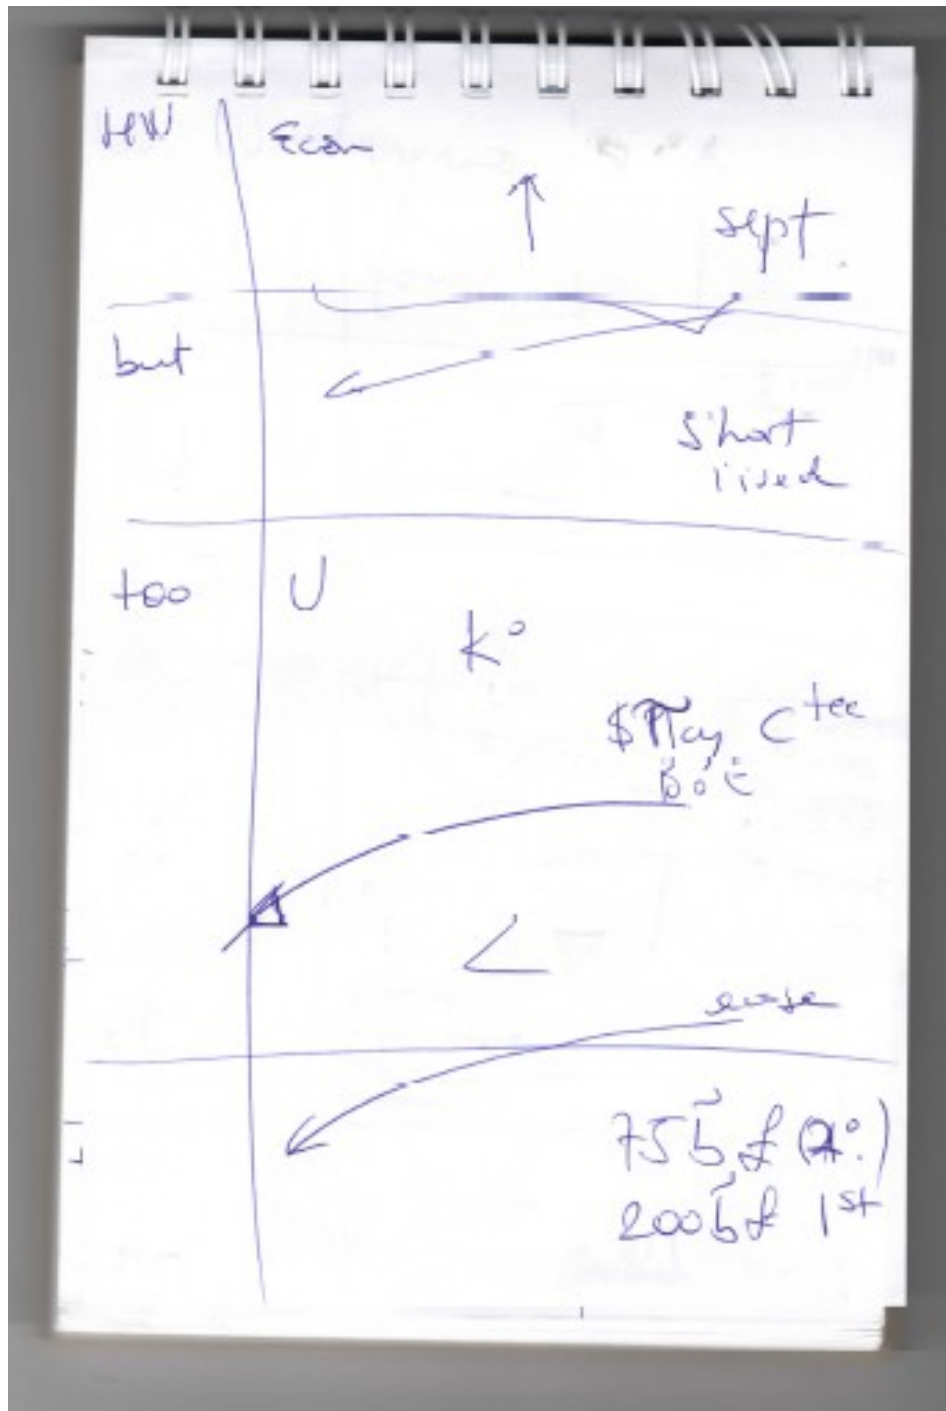 HW
Econ
↑
sept.
but
short
lived
too
U
K°
$πcy Ctee
BoE
<
ease
75b £ (2°.)
200b £ 1st